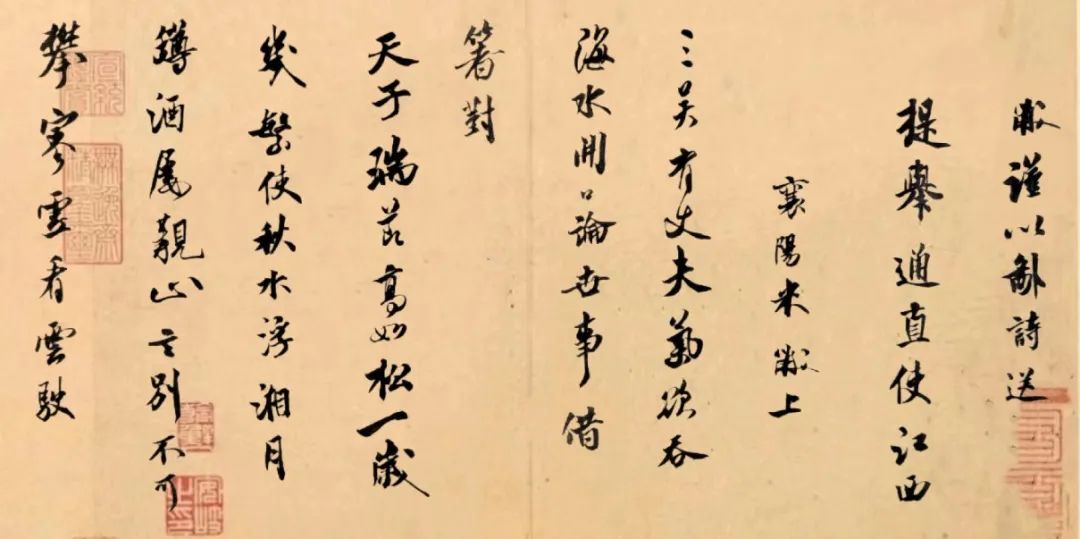 黻謹以鄙詩送
提舉通直使江西
襄陽米黻上
三吳有丈夫氣欲吞
海水開口論世事借
箸對
天子瑞節高如松一歲
幾繁使秋水浮湘月
鐏酒屢止言別不可
攀寥看雲駛